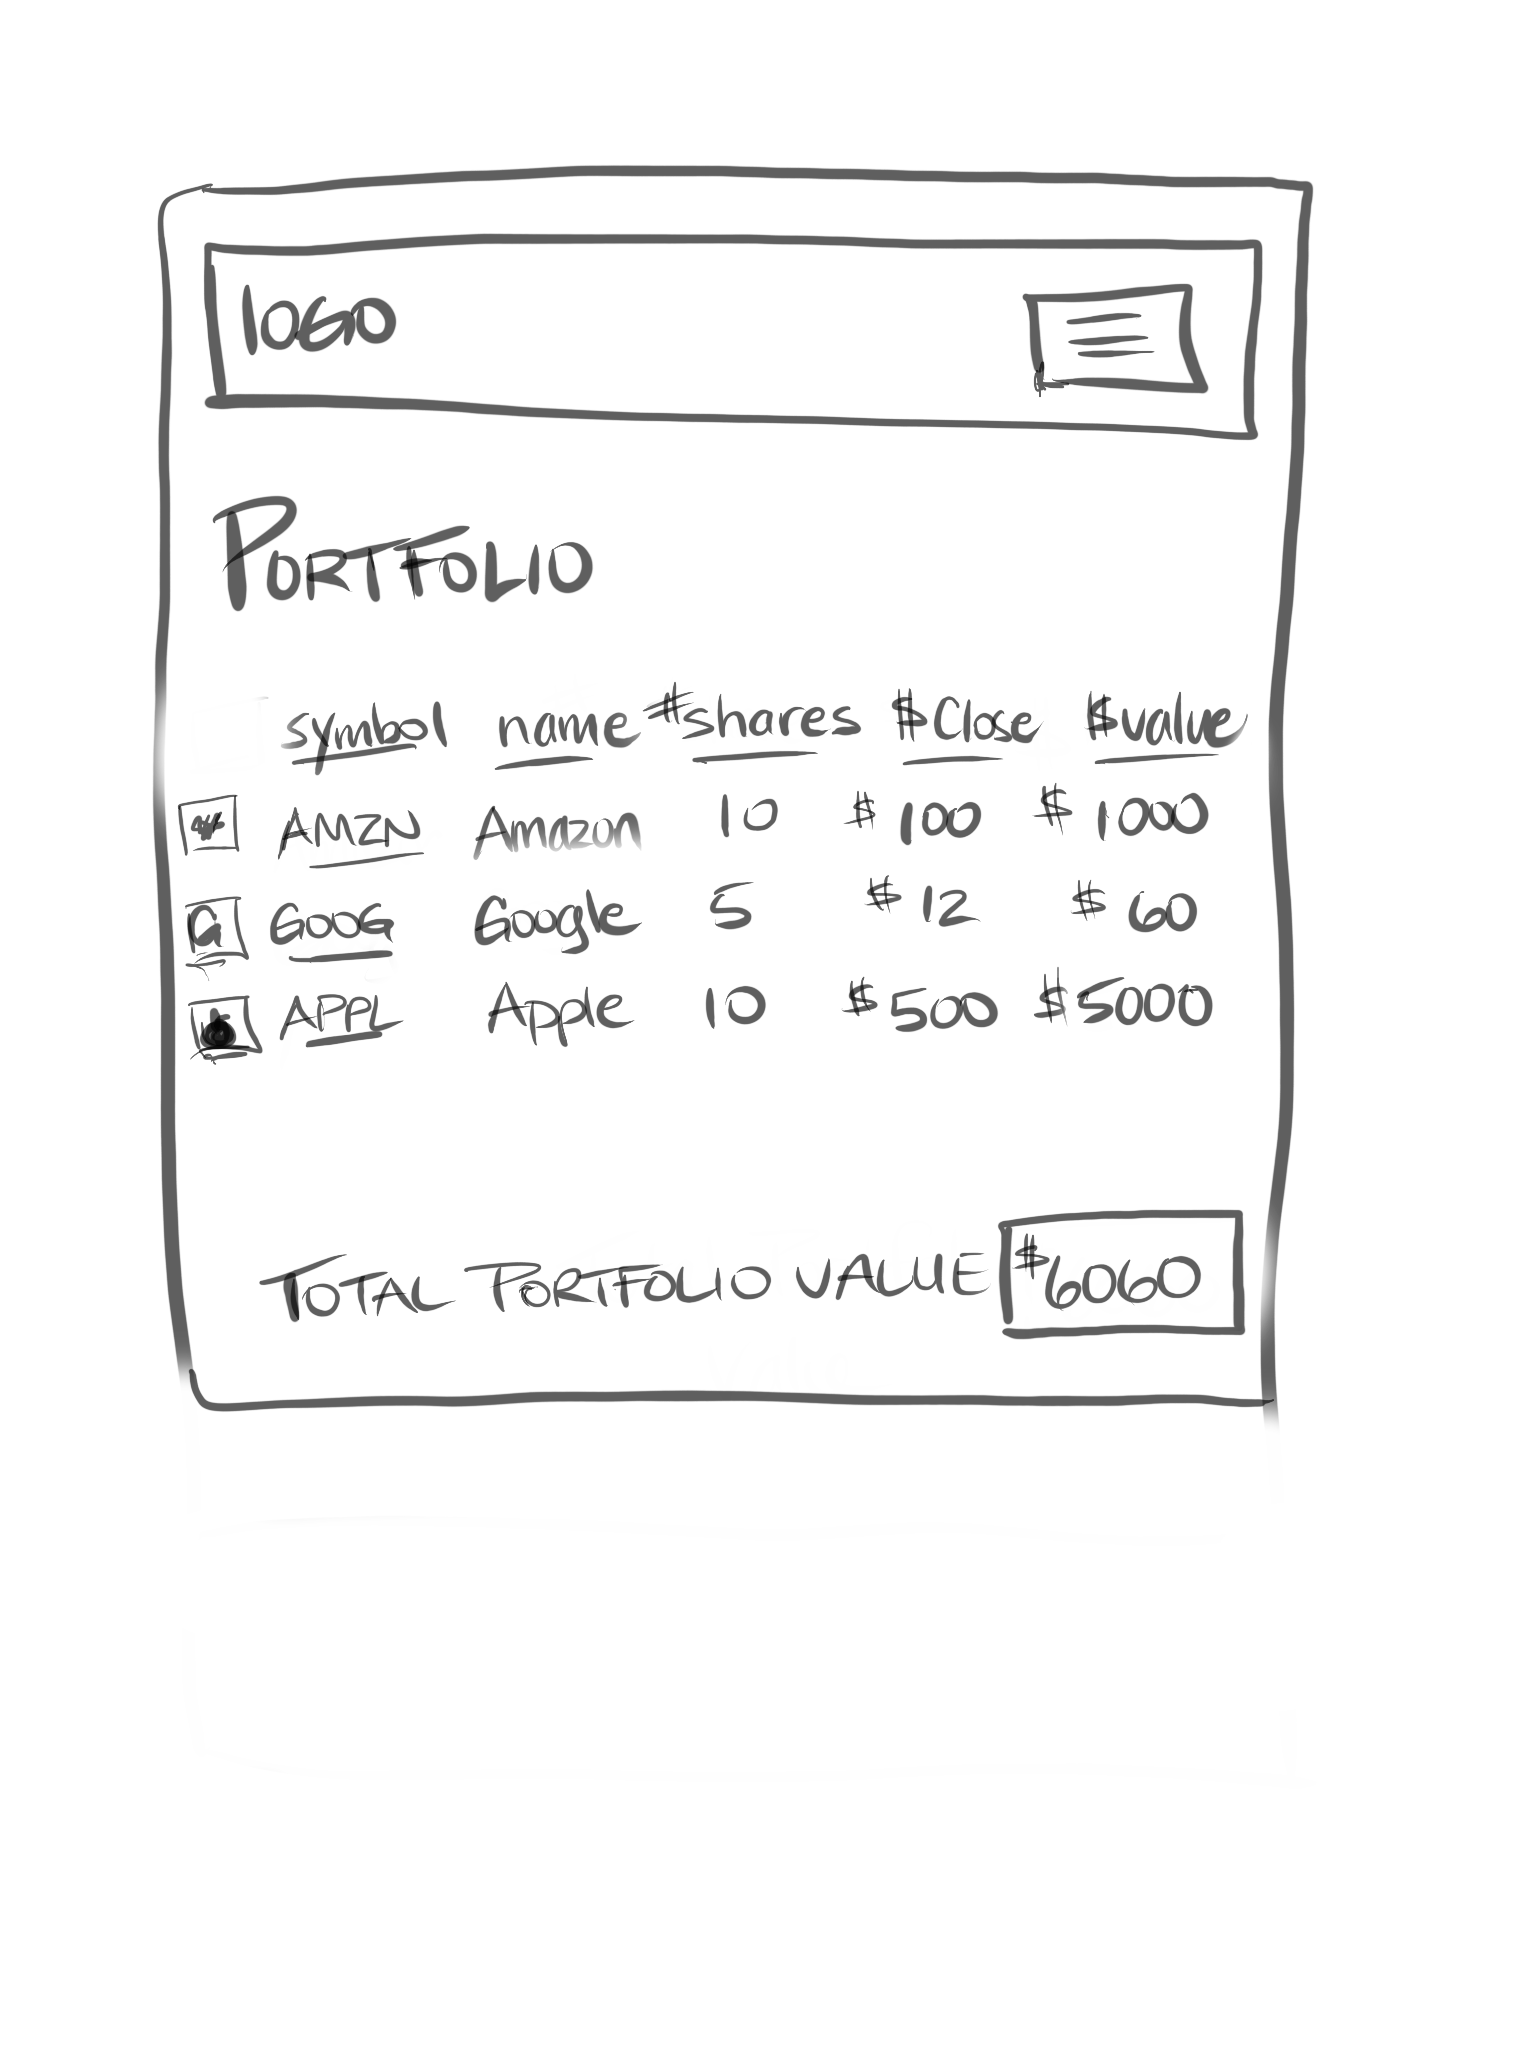 LOGO
PORTFOLIO
symbol name #shares $Close $value
AMZN Amazon 10 $100 $1000
G GOOG Google 5 $12 $60
APPL Apple 10 $500 $5000
TOTAL PORTFOLIO VALUE $6060